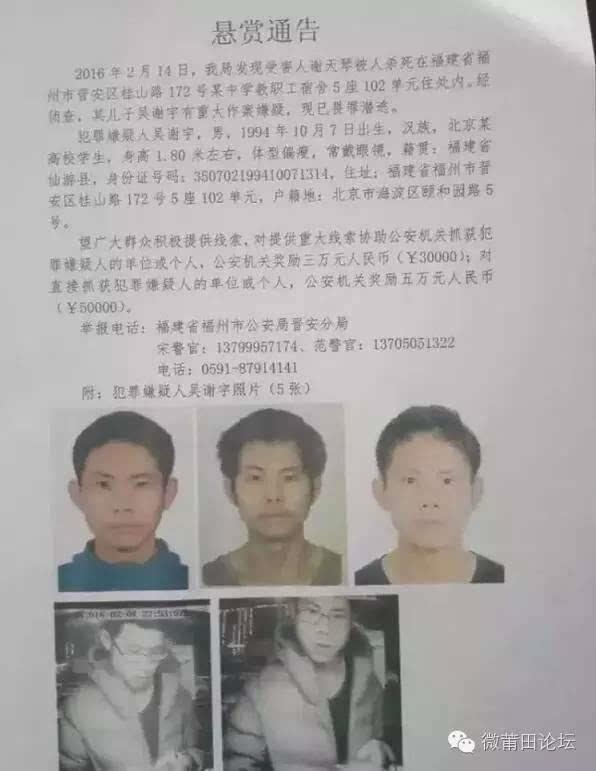 悬赏通告
2016年2月14日，我局发现受害人谢天琴被人杀死在福建省福
州市晋安区桂山路172号某中学教职工宿舍5座102单元住处内。经
侦查，其儿子吴谢宇有重大作案嫌疑，现已畏罪潜逃。
犯罪嫌疑人吴谢宇，男，1994年10月7日出生，汉族，北京某
高校学生，身高1.80米左右，体型偏瘦，常戴眼镜，籍贯：福建省
仙游县，身份证号码：350702199410071314，住址：福建省福州市晋
安区桂山路172号5座102单元，户籍地：北京市海淀区颐和园路5
号。
望广大群众积极提供线索，对提供重大线索协助公安机关抓获犯
罪嫌疑人的单位或个人，公安机关奖励三万元人民币（￥30000）；对
直接抓获犯罪嫌疑人的单位或个人，公安机关奖励五万元人民币
（￥50000）。
举报电话：福建省福州市公安局晋安分局
宋警官：13799957174、范警官：13705051322
电话：0591-87914141
附：犯罪嫌疑人吴谢宇照片（5张）
微莆田论坛